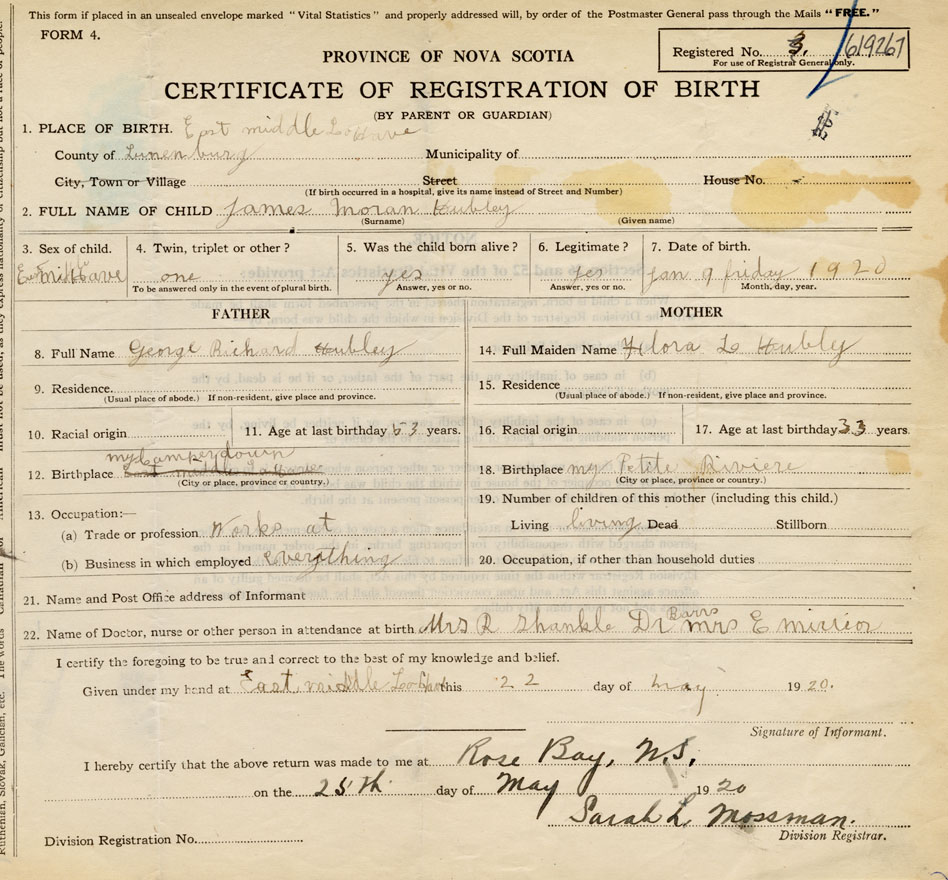 This form if placed in an unsealed envelope marked "Vital Statistics" and properly addressed will, by order of the Postmaster General pass through the Mails "FREE."
FORM 4.
Registered No. 3. 619267
For use of Registrar General only.
PROVINCE OF NOVA SCOTIA
CERTIFICATE OF REGISTRATION OF BIRTH
(BY PARENT OR GUARDIAN)
1. PLACE OF BIRTH. East middle LaHave
County of Lunenburg Municipality of
City, Town or Village Street House No.
(If birth occurred in a hospital, give its name instead of Street and Number)
2. FULL NAME OF CHILD James Moran Hubley
(Surname) (Given name)
3. Sex of child. 4. Twin, triplet or other? 5. Was the child born alive? 6. Legitimate? 7. Date of birth.
one yes yes Jan 9 friday 1920
To be answered only in the event of plural birth. Answer, yes or no. Answer, yes or no. Month, day, year.
FATHER MOTHER
8. Full Name George Richard Hubley 14. Full Maiden Name Flora L Hubley
9. Residence. 15. Residence
(Usual place of abode.) If non-resident, give place and province. (Usual place of abode.) If non-resident, give place and province.
10. Racial origin 11. Age at last birthday 53 years. 16. Racial origin 17. Age at last birthday 33 years.
my Camperdown
12. Birthplace East middle LaHave 18. Birthplace my Petite Riviere
(City or place, province or country.) (City or place, province or country.)
19. Number of children of this mother (including this child.)
13. Occupation:—
(a) Trade or profession Works at Living living Dead Stillborn
(b) Business in which employed everything 20. Occupation, if other than household duties
21. Name and Post Office address of Informant
22. Name of Doctor, nurse or other person in attendance at birth Mrs R Shankle Dr Barrs mrs E
I certify the foregoing to be true and correct to the best of my knowledge and belief.
Given under my hand at East middle LaHave this 22 day of may 1920.
Signature of Informant.
I hereby certify that the above return was made to me at Rose Bay, N.S.
on the 25th day of May 1920
Sarah L. Mossman.
Division Registration No. Division Registrar.